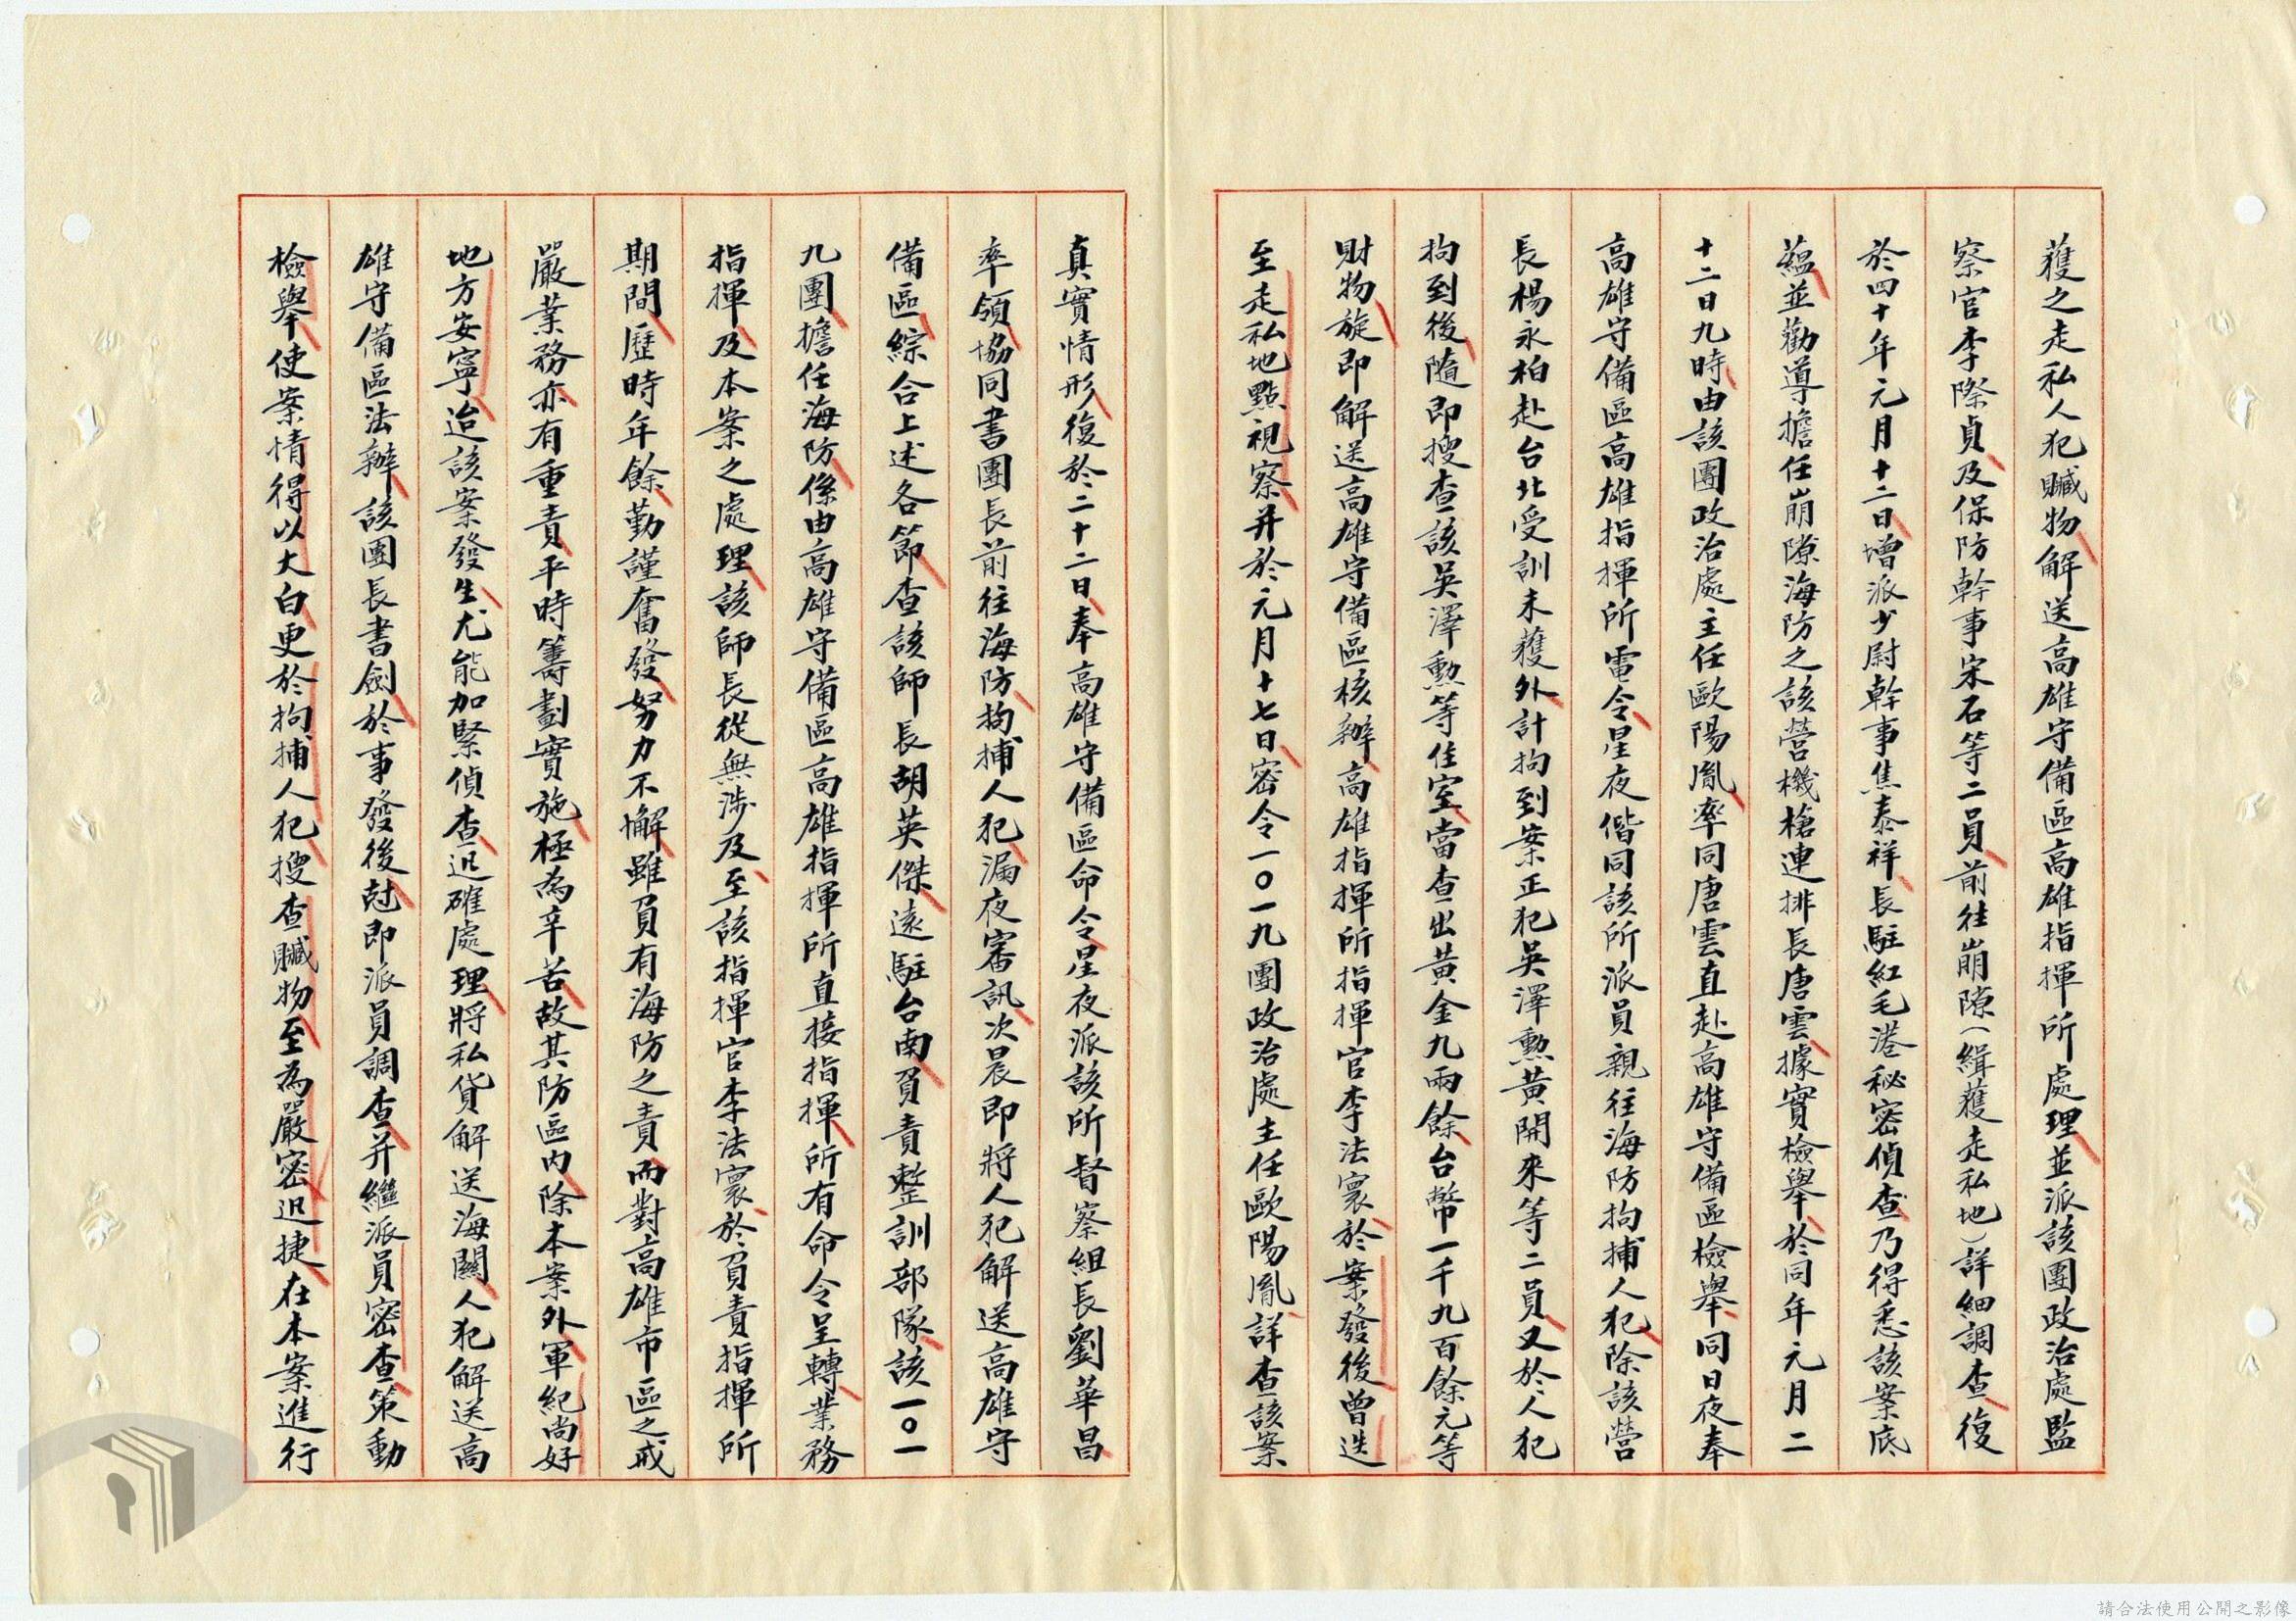 獲之走私人犯贓物解送高雄守備區高雄指揮所處理並派該團政治處監
察官李際貞及保防幹事宋石等二員前往崩隙（緝獲走私地）詳細調查復
於四十年元月十二日增派少尉幹事焦泰祥長駐紅毛港秘密偵查乃得悉該案底
蘊並勸導擔任崩隙海防之該營機槍連排長唐雲據實檢舉於同年元月二
十二日九時由該團政治處主任歐陽胤率同唐雲直赴高雄守備區檢舉同日夜奉
高雄守備區高雄指揮所電令星夜偕同該所派員親往海防拘捕人犯除該營
長楊永柏赴台北受訓未獲外計拘到案正犯吳澤勲黃開來等二員又於人犯
拘到後隨即搜查該吳澤勲等住室當查出黃金九兩餘台幣一千九百餘元等
財物旋即解送高雄守備區核辦高雄指揮所指揮官李法寰於案發後曾迭
至走私地點視察并於元月十七日密令一〇一九團政治處主任歐陽胤詳查該案
真實情形復於二十二日奉高雄守備區命令星夜派該所督察組長劉華昌
率領協同書團長前往海防拘捕人犯漏夜審訊次晨即將人犯解送高雄守
備區綜合上述各節查該師長胡英傑遠駐台南負責整訓部隊該一〇一
九團擔任海防係由高雄守備區高雄指揮所直接指揮所有命令呈轉業務
指揮及本案之處理該師長從無涉及至該指揮官李法寰於負責指揮所
期間歷時年餘勤謹奮發努力不懈雖負有海防之責而對高雄市區之戒
嚴業務亦有重責平時籌劃實施極為辛苦故其防區內除本案外軍紀尚好
地方安寧迨該案發生尤能加緊偵查迅確處理將私貨解送海關人犯解送高
雄守備區法辦該團長書劍於事發後尅即派員調查并繼派員密查策動
檢舉使案情得以大白更於拘捕人犯搜查贓物至為嚴密迅捷在本案進行
請合法使用公開之影像